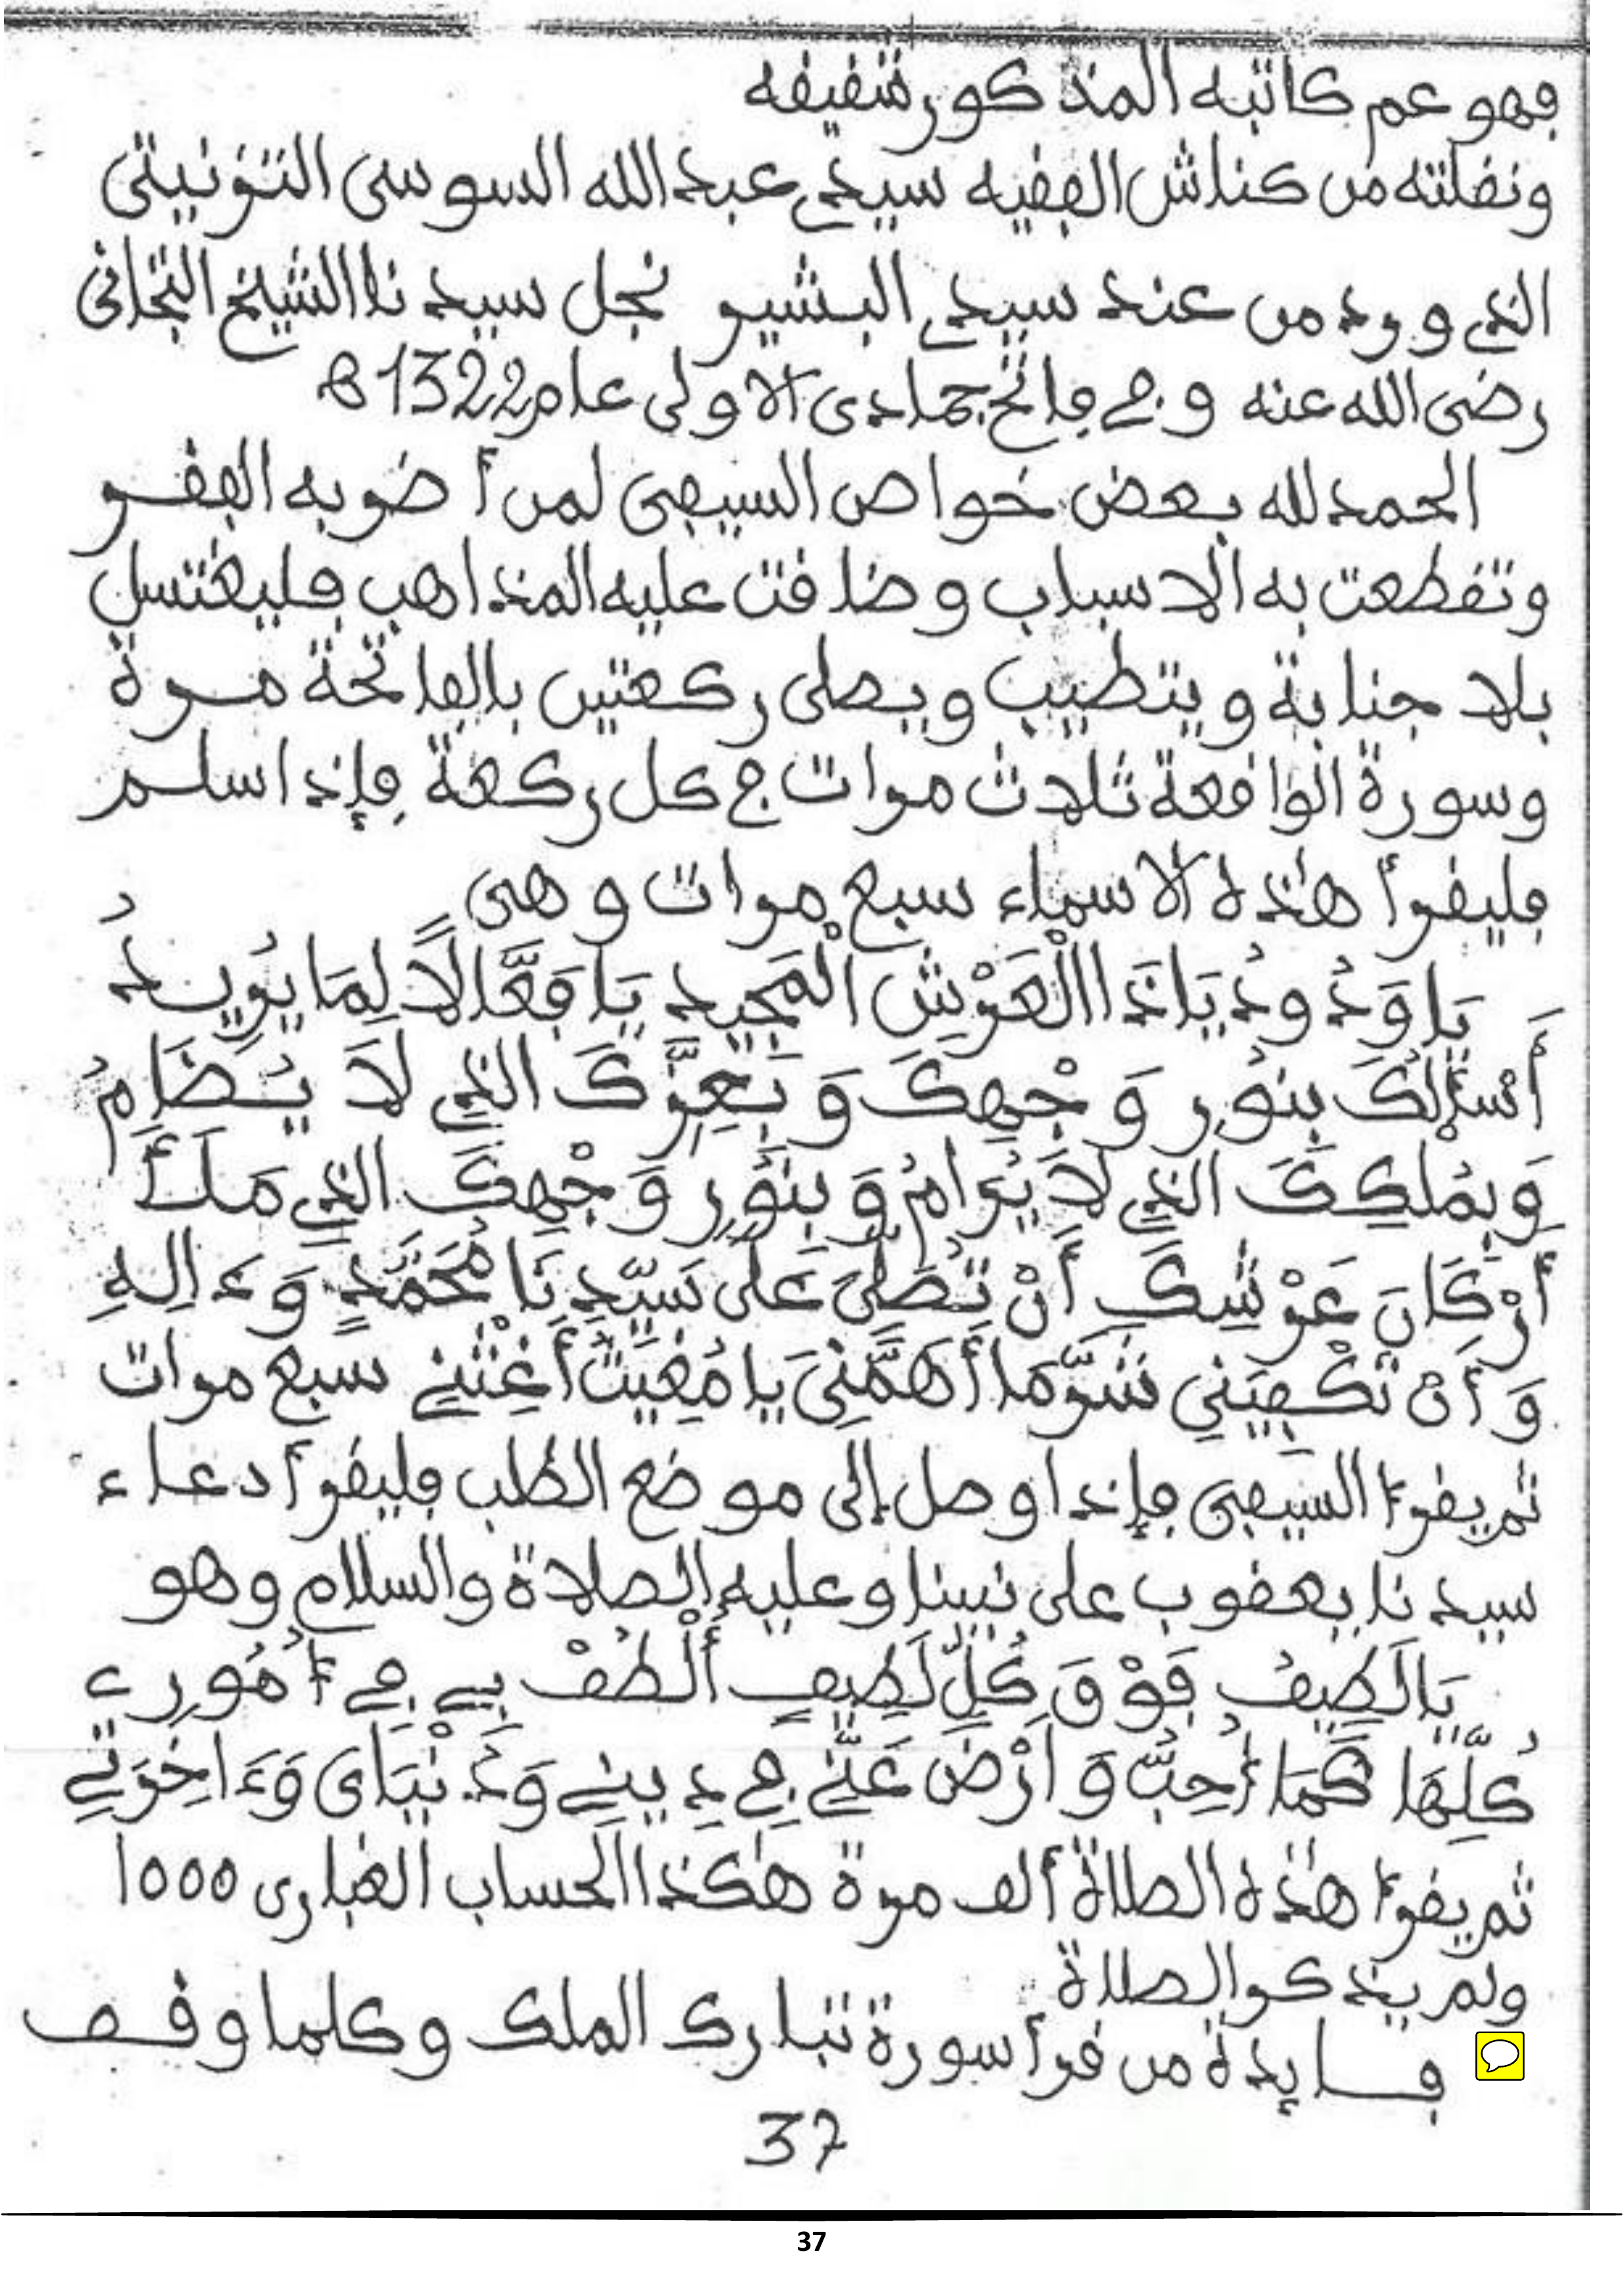 فهو عم كاتبه المذكور شقيقه
ونقلته من كناش الفقيه سيدي عبد الله السوسي التونيتي
الذي ورد من عند سيدي البشير نجل سيدنا الشيخ التجاني
رضي الله عنه وفي فاتح جمادى الاولى عام 1322 ه
الحمد لله بعض خواص السيفي لمن أضر به الفقر
وتقطعت به الاسباب وضاقت عليه المذاهب فليغتسل
بلا جنابة ويتطيب ويصلي ركعتين بالفاتحة مرة
وسورة الواقعة ثلاث مرات في كل ركعة فإذا سلم
فليقرأ هٰذه الاسماء سبع مرات وهي
يَا وَدُودُ يَا ذَا الْعَرْشِ الْمَجِيد يَا فَعَّالًا لِمَا يُرِيدُ
أَسْأَلُكَ بِنُورِ وَجْهِكَ وَبِعِزِّكَ الذِي لَا يُضَامُ
وَبِمُلْكِكَ الذِي لَا يُرَامُ وَبِنُورِ وَجْهِكَ الذِي مَلَأَ
أَرْكَانَ عَرْشِكَ أَنْ تُصَلِّيَ عَلَى سَيِّدِنَا مُحَمَّدٍ وَءَالِهِ
وَأَنْ تَكْفِيَنِي شَرَّ مَا أَهَمَّنِيَ يَا مُغِيثُ أَغِثْنِي سبع مرات
ثم يقرأ السيفي فإذا وصل إلى موضع الطلب فليقرأ دعاء
سيدنا يعقوب على نبينا وعليه الصلاة والسلام وهو
يَا لَطِيفُ فَوْقَ كُلِّ لَطِيفٍ أُلْطُفْ بِي فِي أُمُورِي
كُلِّهَا كَمَا أُحِبُّ وَارْضَ عَنِّي فِي دِينِي وَدُنْيَايَ وَءَاخِرَتِي
ثم يقرأ هٰذه الصلاة ألف مرة هٰكذا الحساب الغباري 1000
ولم يذكر الصلاة
فايدة من قرأ سورة تبارك الملك وكلما وقف
37
37